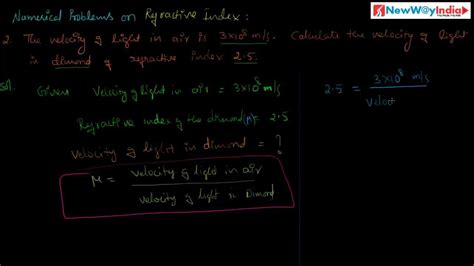 Numerical Problems on Refractive Index :
NewW@yIndia
2. The velocity of light in air is 3×10⁸ m/s. Calculate the velocity of light
in dimond of refractive index 2.5.
Sol. Given Velocity of light in air = 3×10⁸ m/s
Refractive index of the dimond(μ) = 2.5
velocity of light in dimond = ?
μ = velocity of light in air
velocity of light in Dimond
2.5 = 3×10⁸ m/s
veloc